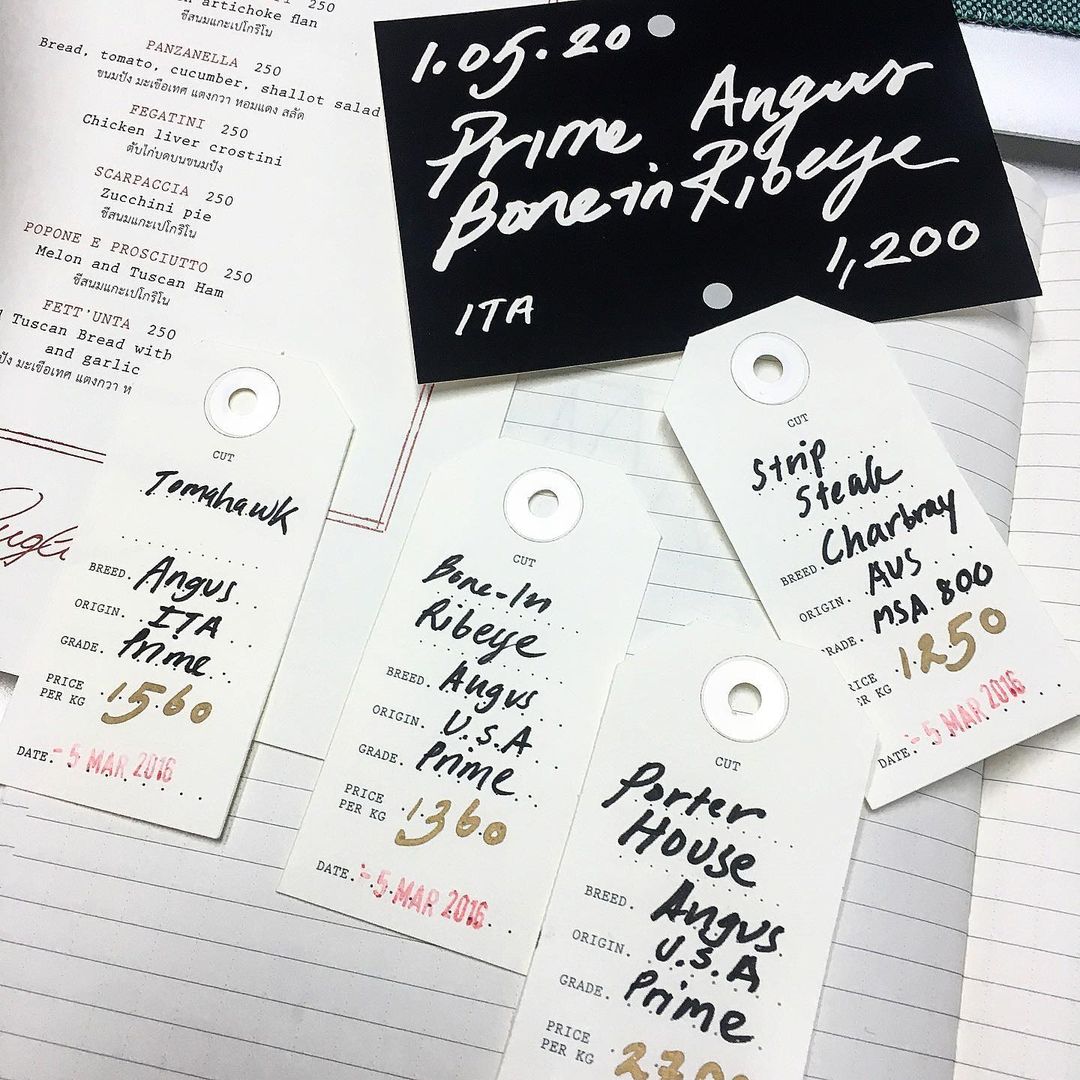 250
n artichoke flan
ชีสนมแกะเปโกริโน
PANZANELLA 250
Bread, tomato, cucumber, shallot salad
ขนมปัง มะเขือเทศ แตงกวา หอมแดง สลัด
FEGATINI 250
Chicken liver crostini
ตับไก่บดบนขนมปัง
SCARPACCIA 250
Zucchini pie
ชีสนมแกะเปโกริโน
POPONE E PROSCIUTTO 250
Melon and Tuscan Ham
ชีสนมแกะเปโกริโน
FETT'UNTA 250
Tuscan Bread with
and garlic
ปัง มะเขือเทศ แตงกวา ห
1.05.20
Prime Angus
Bone-in Ribeye
1,200
ITA
CUT
Tomahawk
BREED. Angus
ORIGIN. ITA
GRADE. Prime
PRICE
PER KG 1560
DATE. - 5 MAR 2016
CUT
Bone-In
Ribeye
BREED. Angus
ORIGIN. U.S.A
GRADE. Prime
PRICE
PER KG 1360
DATE. - 5 MAR 2016
CUT
Strip
Steak
BREED. Charbray
ORIGIN. AUS
RADE. MSA 800
RICE
ER KG 1250
DATE. - 5 MAR 2016
CUT
Porter
House
BREED. Angus
ORIGIN. U.S.A
GRADE. Prime
PRICE
PER KG